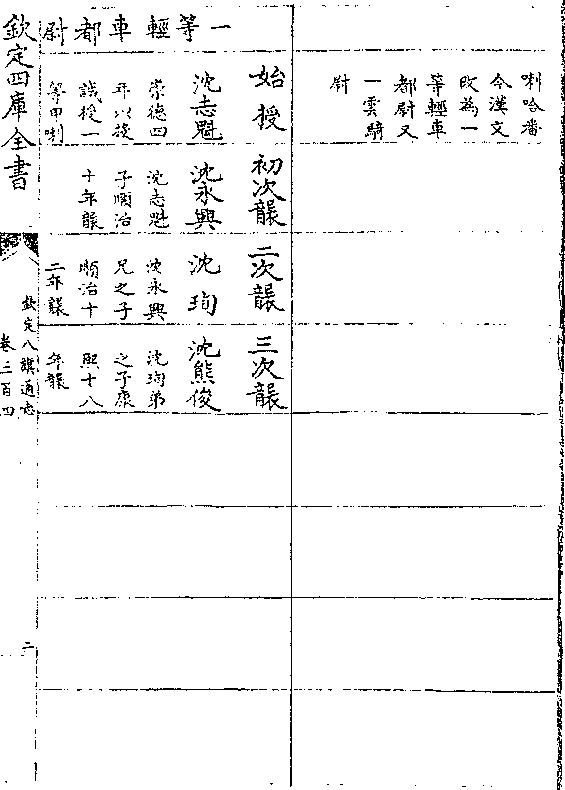 喇哈番
今漢文
改為一
等輕車
都尉又
一雲騎
尉
一等輕車都尉
始授
沈志魁
崇德四
年以後
議授一
等甲喇
初次襲
沈永興
沈志魁
子順治
十年襲
二次襲
沈珣
沈永興
兄之子
順治十
二年襲
三次襲
沈熊俊
沈珣弟
之子康
熙十八
年襲
欽定四庫全書
欽定八旗通志
卷三百四
二